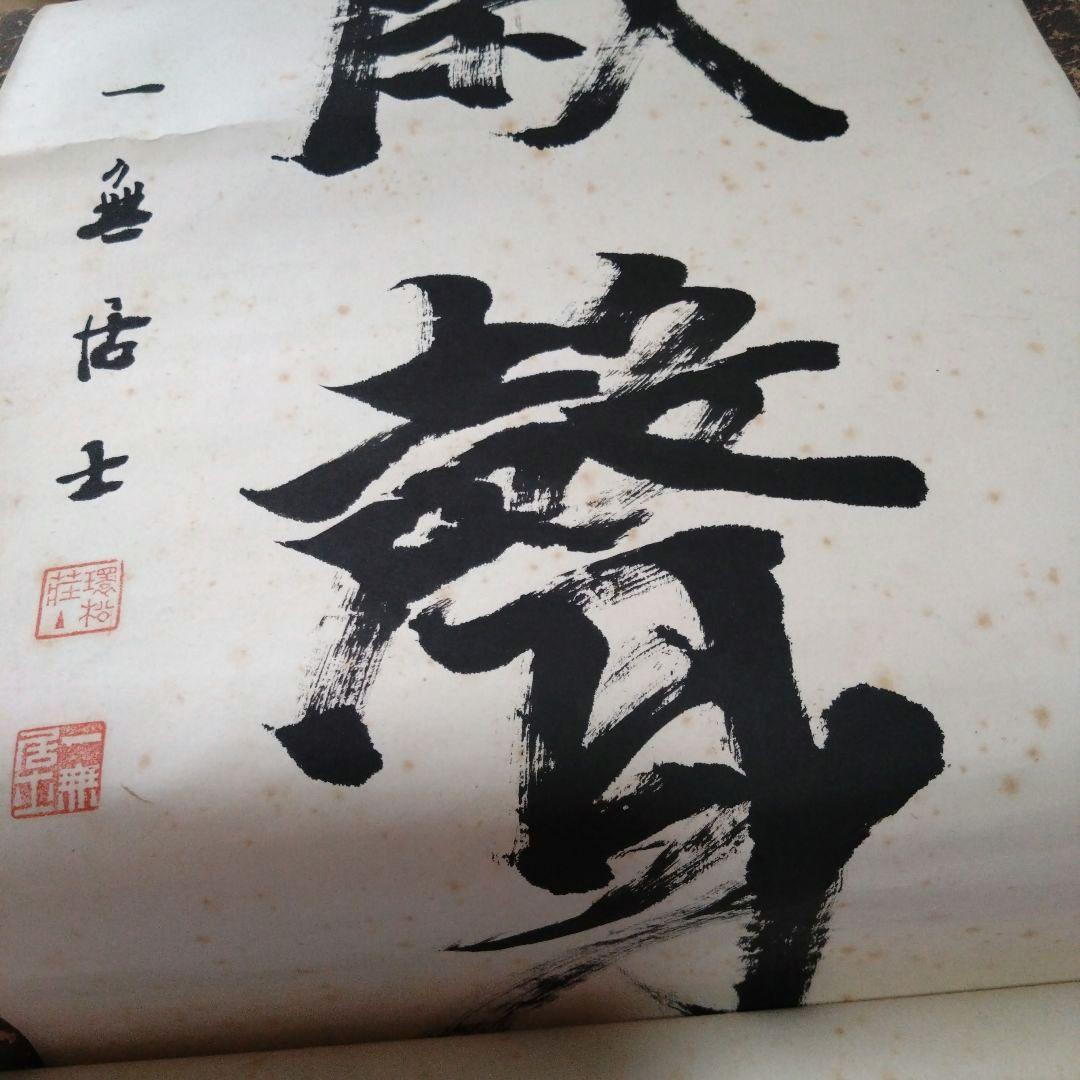 聲
一無居士
環松
莊
一無
居士